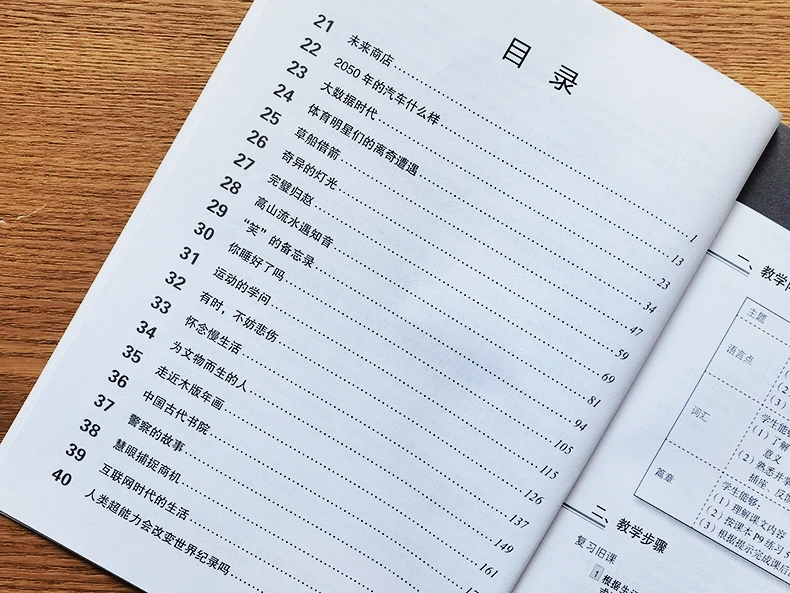 目录
21 未来商店 1
22 2050 年的汽车什么样 13
23 大数据时代 23
24 体育明星们的离奇遭遇 34
25 草船借箭 47
26 奇异的灯光 59
27 完璧归赵 69
28 高山流水遇知音 81
29 “笑”的备忘录 94
30 你睡好了吗 105
31 运动的学问 115
32 有时，不妨悲伤 126
33 怀念慢生活 137
34 为文物而生的人 149
35 走近木版年画 161
36 中国古代书院
37 警察的故事
38 慧眼捕捉商机
39 互联网时代的生活
40 人类超能力会改变世界纪录吗
一、教学
主题
语言点
（2）
（3）
词汇
学生能
（1）了解
意义
（2）熟悉并
插座、反
篇章
学生能够：
（1）理解课文内容
（2）按课本 P9 练习 5
（3）根据提示完成课后
二、教学步骤
复习旧课
1 根据生